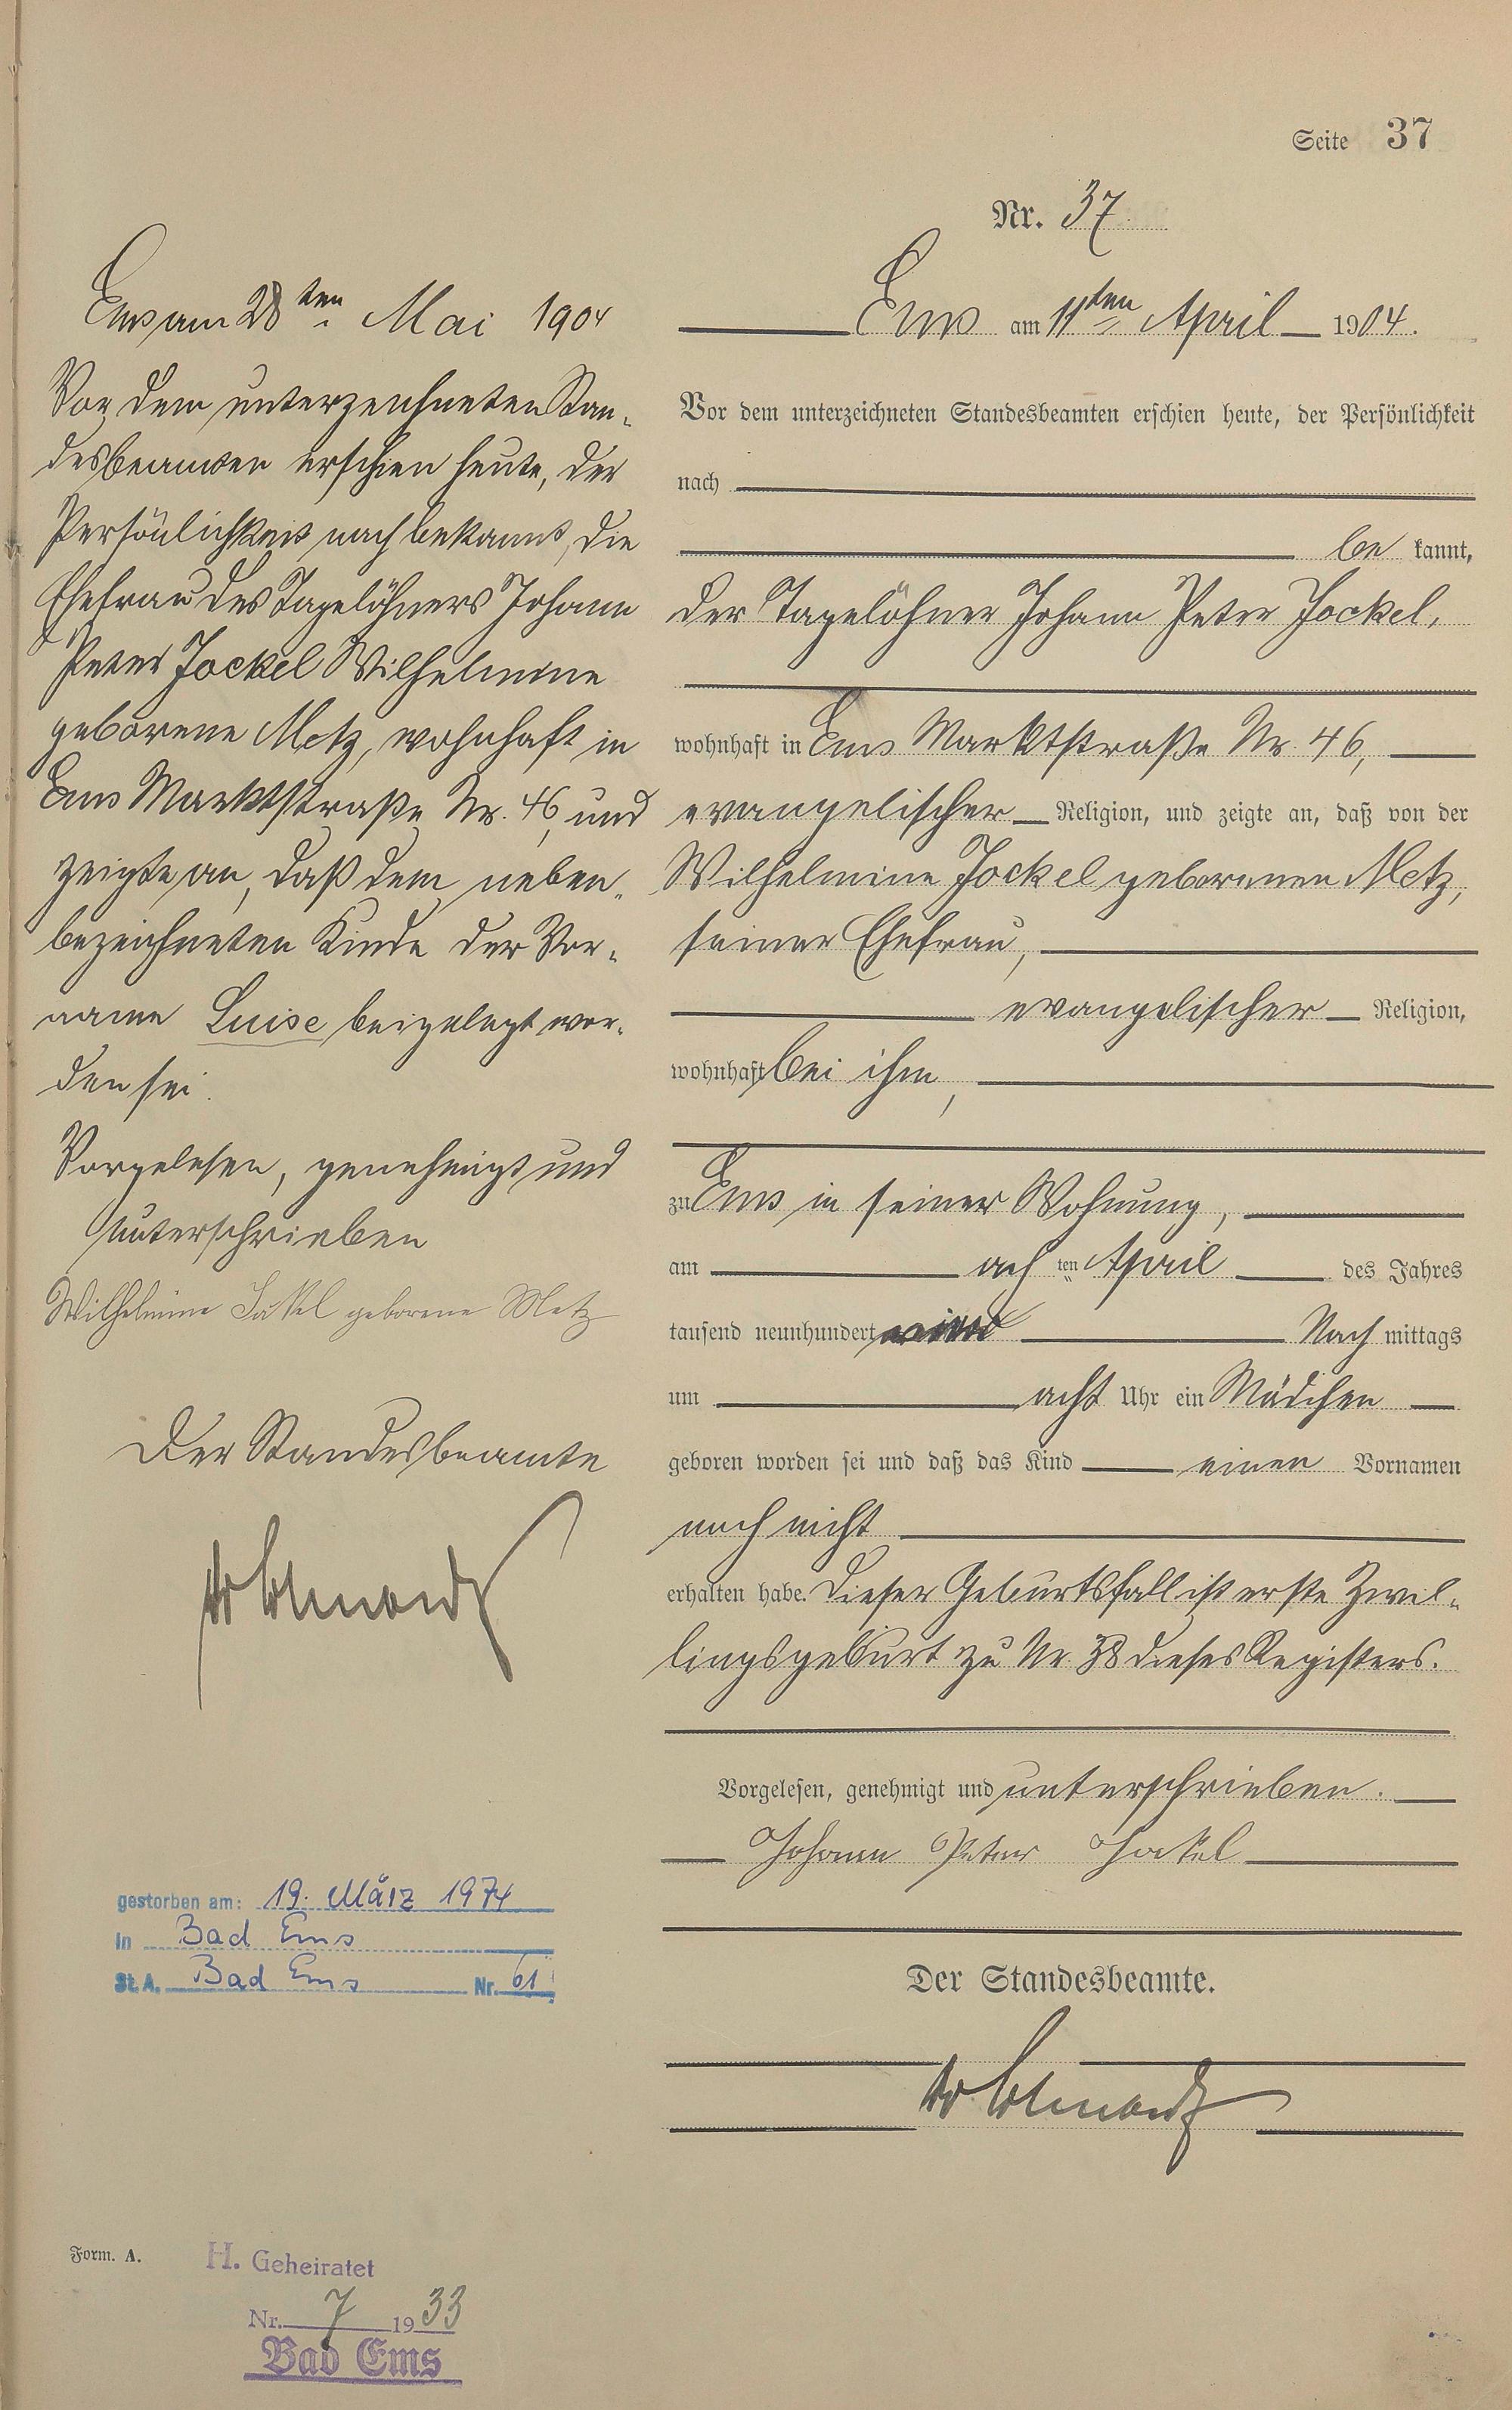 Seite 37
Nr. 37
Ems am 11ten April 1904.
Vor dem unterzeichneten Standesbeamten erschien heute, der Persönlichkeit
nach
be kannt,
der Tagelöhner Johann Peter Jockel,
wohnhaft in Ems Marktstraße Nr. 46,
evangelischer Religion, und zeigte an, daß von der
Wilhelmine Jockel geborenen Metz,
seiner Ehefrau,
evangelischer Religion,
wohnhaft bei ihm,
zu Ems in seiner Wohnung,
am ach ten April des Jahres
tausend neunhundert Nach mittags
um acht Uhr ein Mädchen
geboren worden sei und daß das Kind einen Vornamen
noch nicht
erhalten habe. Dieser Geburtsfall ist erste Zwil-
lingsgeburt zu Nr. 38 dieses Registers.
Vorgelesen, genehmigt und unterschrieben.
Johann Peter Jockel
Der Standesbeamte.
Ems am 28ten Mai 1904
Vor dem unterzeichneten Stan-
desbeamten erschien heute, der
Persönlichkeit nach bekannt, die
Ehefrau des Tagelöhners Johann
Peter Jockel Wilhelmine
geborene Metz, wohnhaft in
Ems Marktstraße Nr. 46, und
zeigte an, daß dem neben-
bezeichneten Kinde der Vor-
name Luise beigelegt wor-
den sei.
Vorgelesen, genehmigt und
unterschrieben
Wilhelmine Jäkel geborene Metz
Der Standesbeamte
gestorben am: 19. März 1974
in Bad Ems
St. A. Bad Ems Nr. 61
Form. A.
H. Geheiratet
Nr. 7 1933
Bad Ems